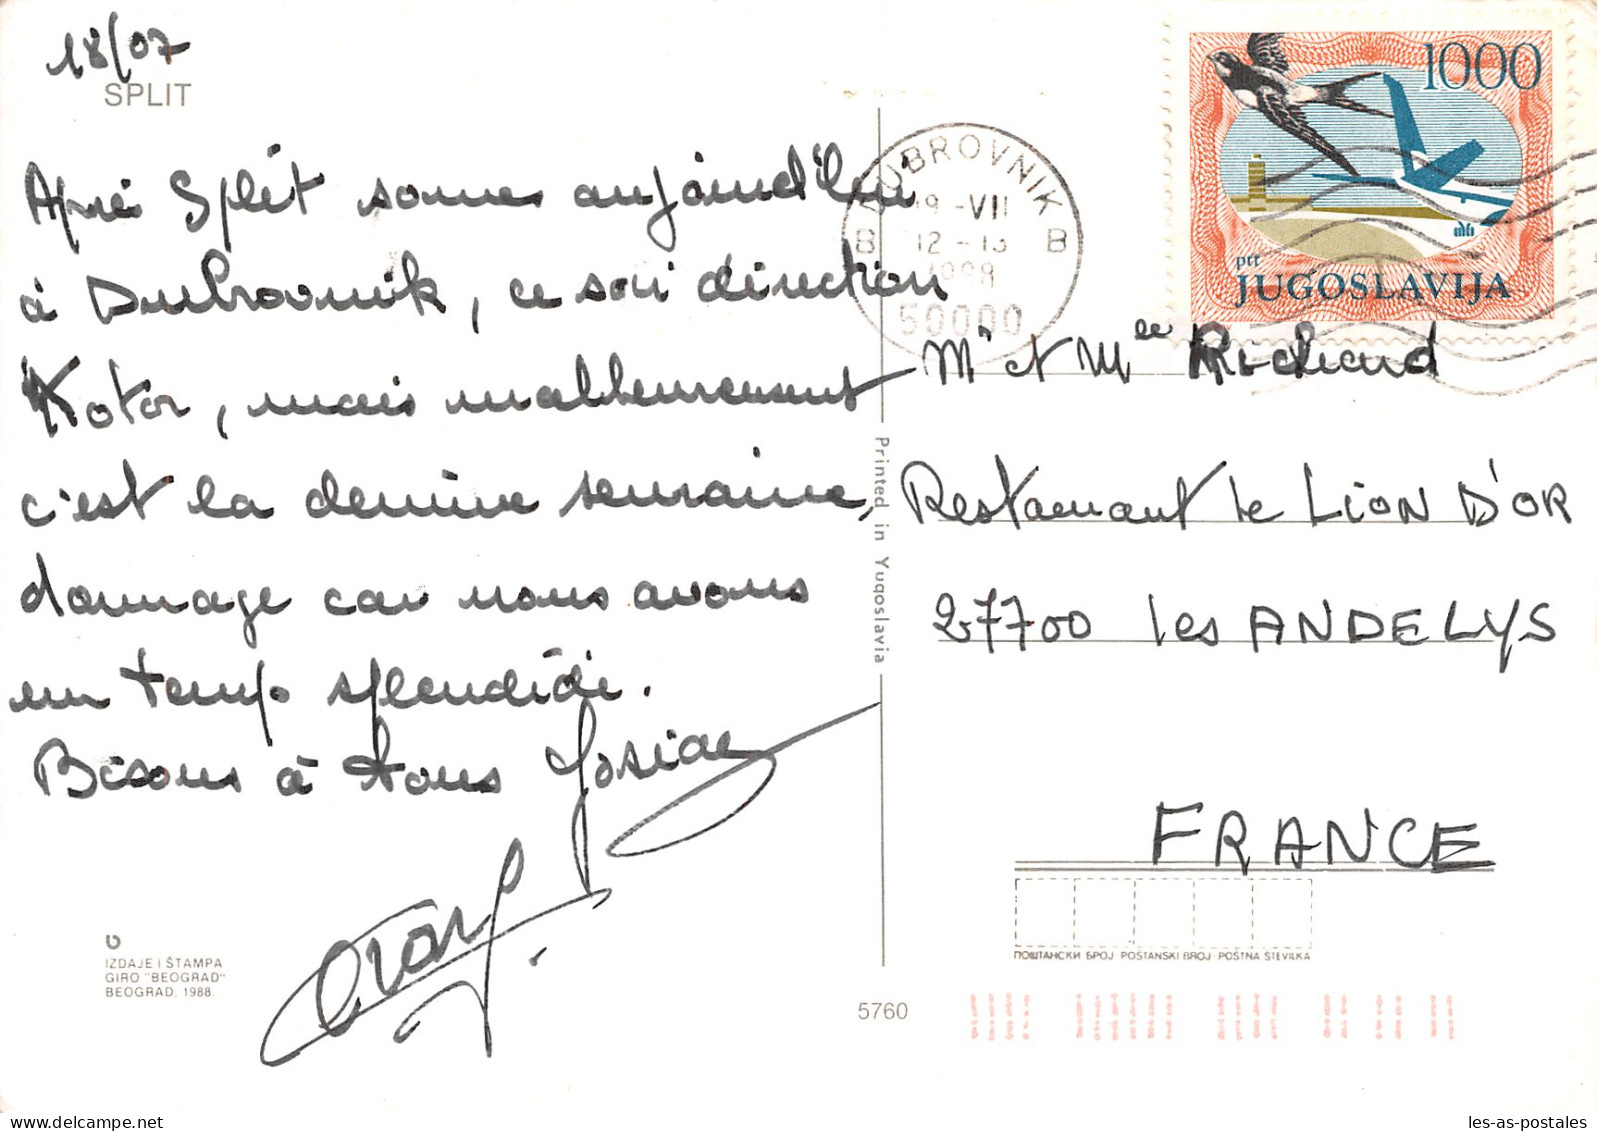 18/07
SPLIT
Après Split sommes aujourd'hui
à Dubrovnik, ce soir direction
Kotor, mais malheureusement
c'est la dernière semaine,
dommage car nous avons
un temps splendide.
Bisous à tous Josiane
IZDAJE I ŠTAMPA
GIRO "BEOGRAD"
BEOGRAD. 1988.
Printed in Yugoslavia
5760
DUBROVNIK
B B
19 -VII
12 - 13
1988
50000
1000
ptt
JUGOSLAVIJA
Mr et Mme Richard
Restaurant le LION D'OR
27700 les ANDELYS
FRANCE
ПОШТАНСКИ БРОЈ · POŠTANSKI BROJ · POŠTNA ŠTEVILKA
les-as-postales